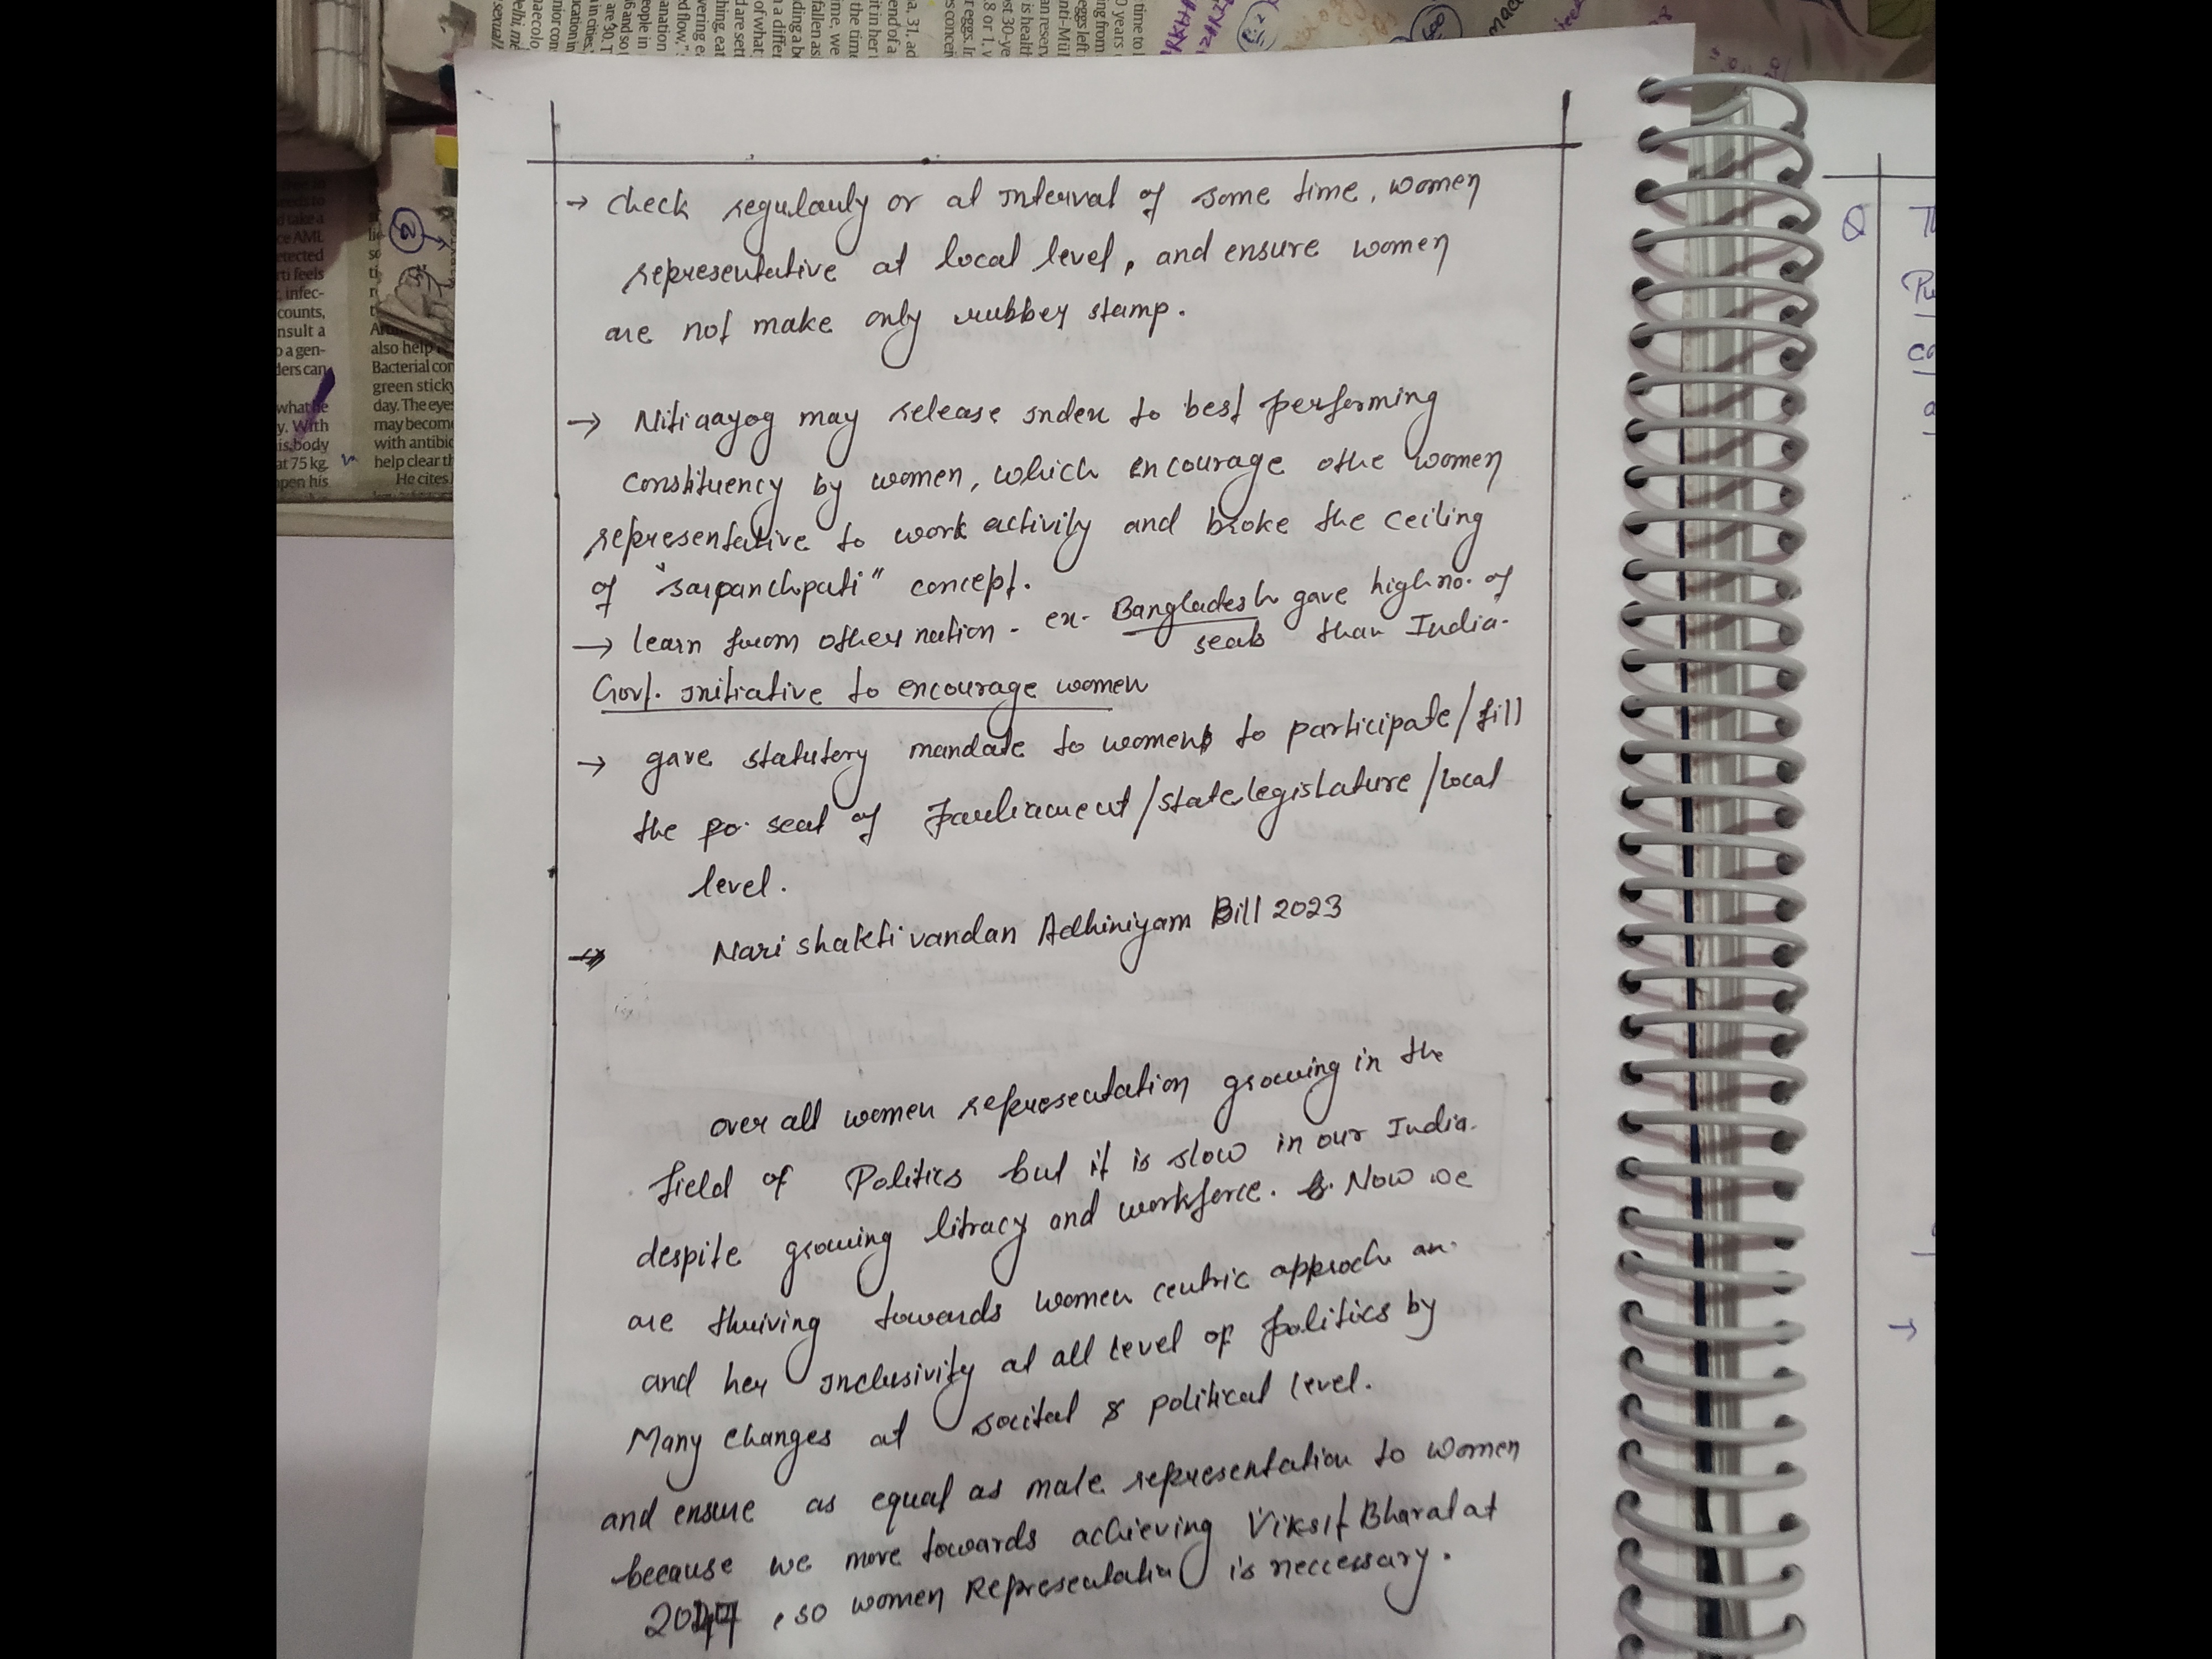 → check regularly or at interval of some time, women
representative at local level, and ensure women
are not make only rubber stamp.
→ Nitiaayog may release index to best performing
constituency by women, which encourage othe women
representative to work activity and broke the ceiling
of "sarpanchpati" concept.
→ learn from other nation - ex- Bangladesh gave high no. of
seats than India.
Govt. initiative to encourage women
→ gave statutory mandate to women to participate/fill
the seat of Parliament/statelegislature/local
level.
→ Nari shakti vandan Adhiniyam Bill 2023
over all women representation growing in the
field of Politics but it is slow in our India.
despite growing litracy and workforce. Now we
are thriving towards women centric approch an
and her inclusivity at all level of politics by
Many changes at socital & political level.
and ensure as equal as male representation to women
because we move towards achieving Viksit Bharat at
2047, so women Representation is neccessary.
Q
also help
Bacterial
green sticky
day. The eyes
may become
with antibio
help clear th
He cites
counts,
nsult a
a gen-
ders can
y. With
is body
at 75 kg.
pen his
2
→